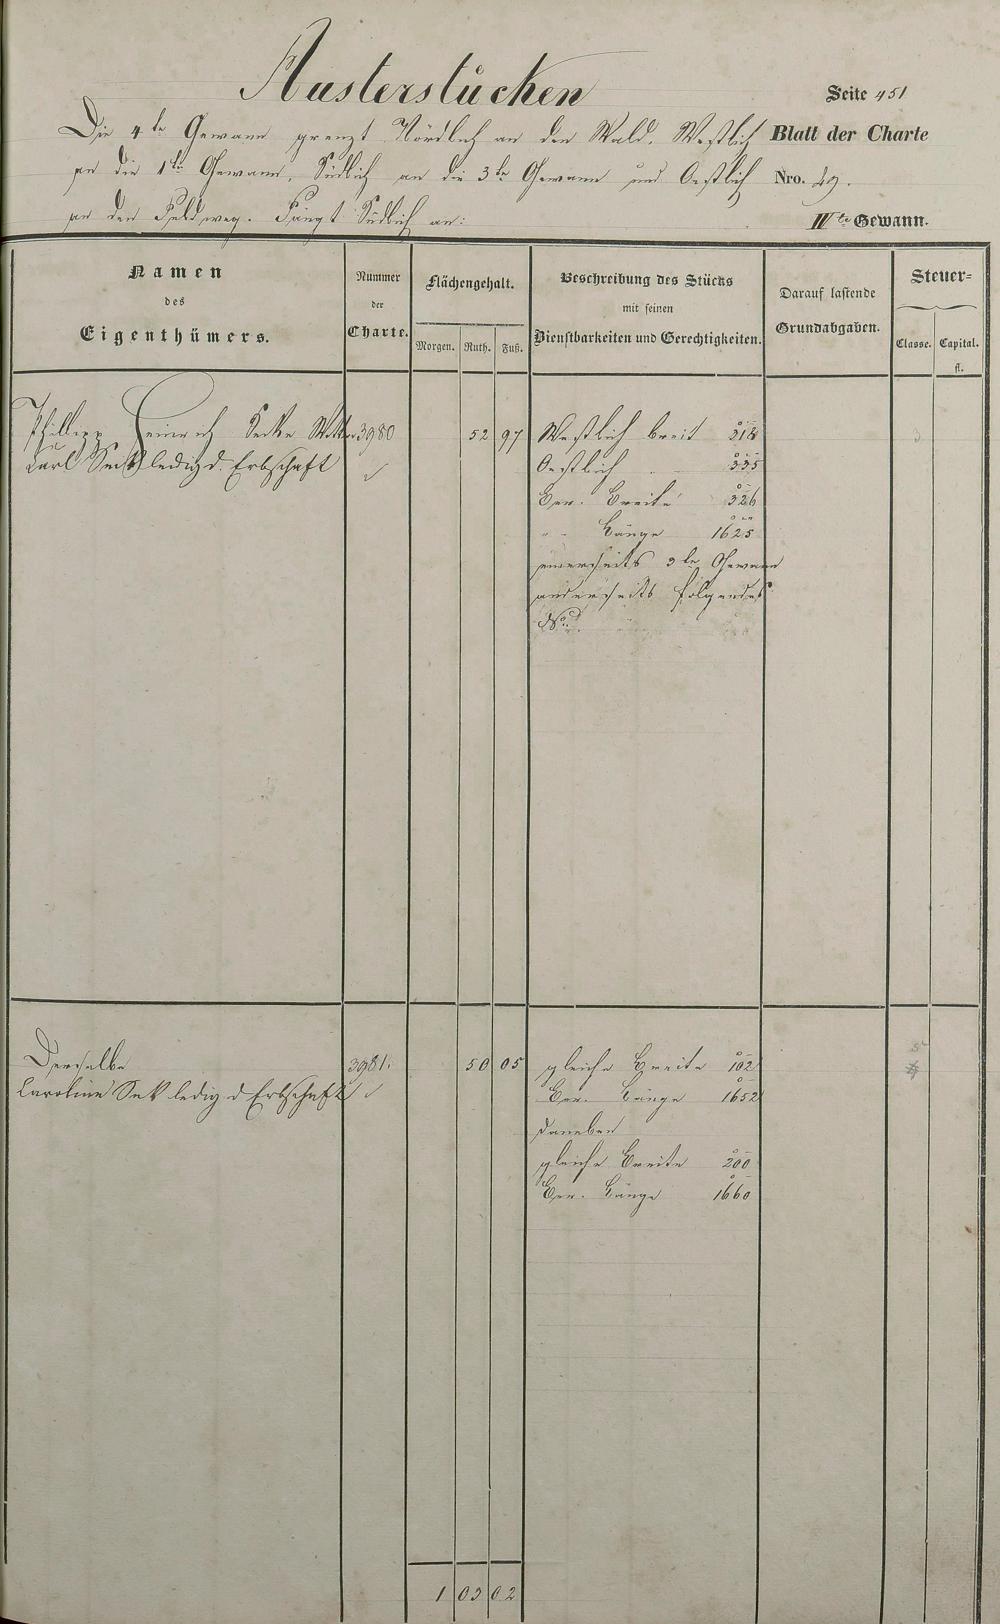 Austerstücken
Seite 451
Die 4te Gewann grenzt Nördlich an den Wald. Westlich
Blatt der Charte
an die 1te Gewann, Südlich an die 3te Gewann und Oestlich
Nro. 49.
an den Feldweg. Fängt Südlich an:
IVte Gewann.
Namen
des
Eigenthümers.
Nummer
der
Charte.
Flächengehalt.
Morgen. Ruth. Fuß.
Beschreibung des Stücks
mit seinen
Dienstbarkeiten und Gerechtigkeiten.
Darauf lastende
Grundabgaben.
Steuer=
Classe. Capital.
fl.
Phillipp Heinrich 3980 52 97 Westlich breit 318
Carl Seck ledig d. Erbschaft Oestlich 335
Ger. Breite 326
" " Länge 1625
einerseits 3te Gewann
anderseits folgendes
No.
Derselbe 3981. 50 05 gleiche Breite 102
Caroline Seck ledig d Erbschaft Ger. Länge 1652
daneben
gleiche Breite 200
Ger. Länge 1660
1 03 02